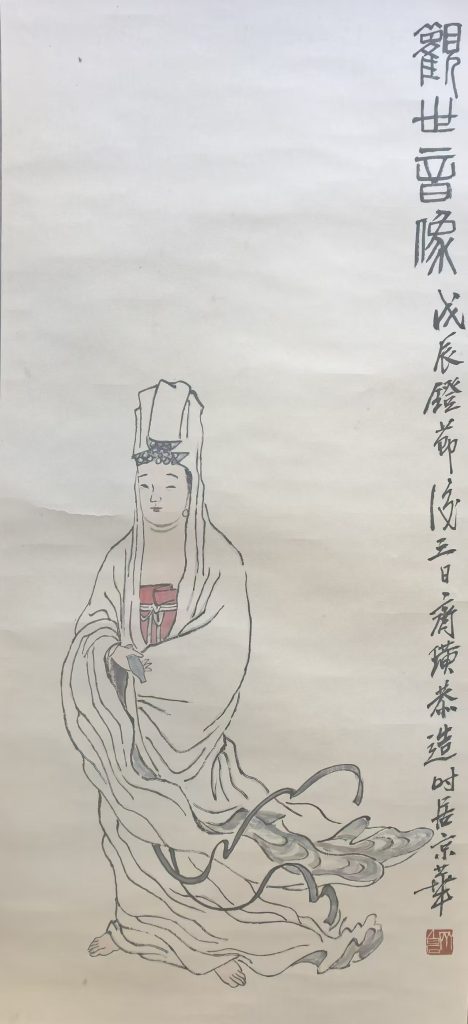 觀世音像
戊辰鐙節後三日齊璜恭造時居京華